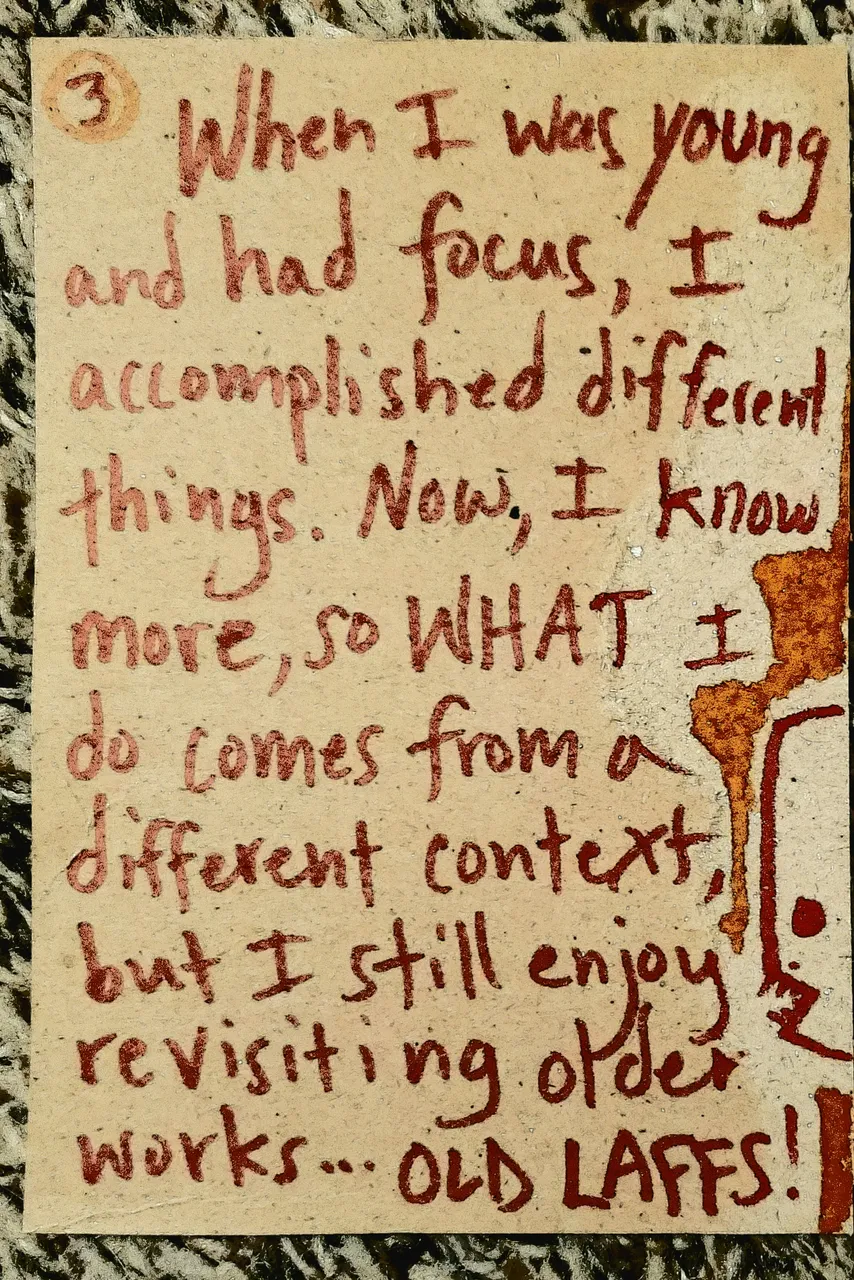 3
When I was young
and had focus, I
accomplished different
things. Now, I know
more, so WHAT I
do comes from a
different context,
but I still enjoy
revisiting older
works... OLD LAFFS!